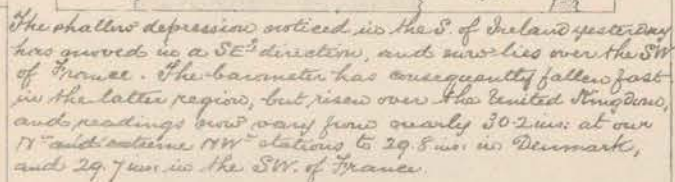 The shallow depression noticed in the S. of Ireland yesterday
has moved in a SEly direction, and now lies over the SW
of France. The barometer has consequently fallen fast
in the latter region, but risen over the United Kingdom,
and readings now vary from nearly 30.2 ins: at our
Nn and extreme NWn stations to 29.8 ins. in Denmark,
and 29.7 ins. in the SW. of France.